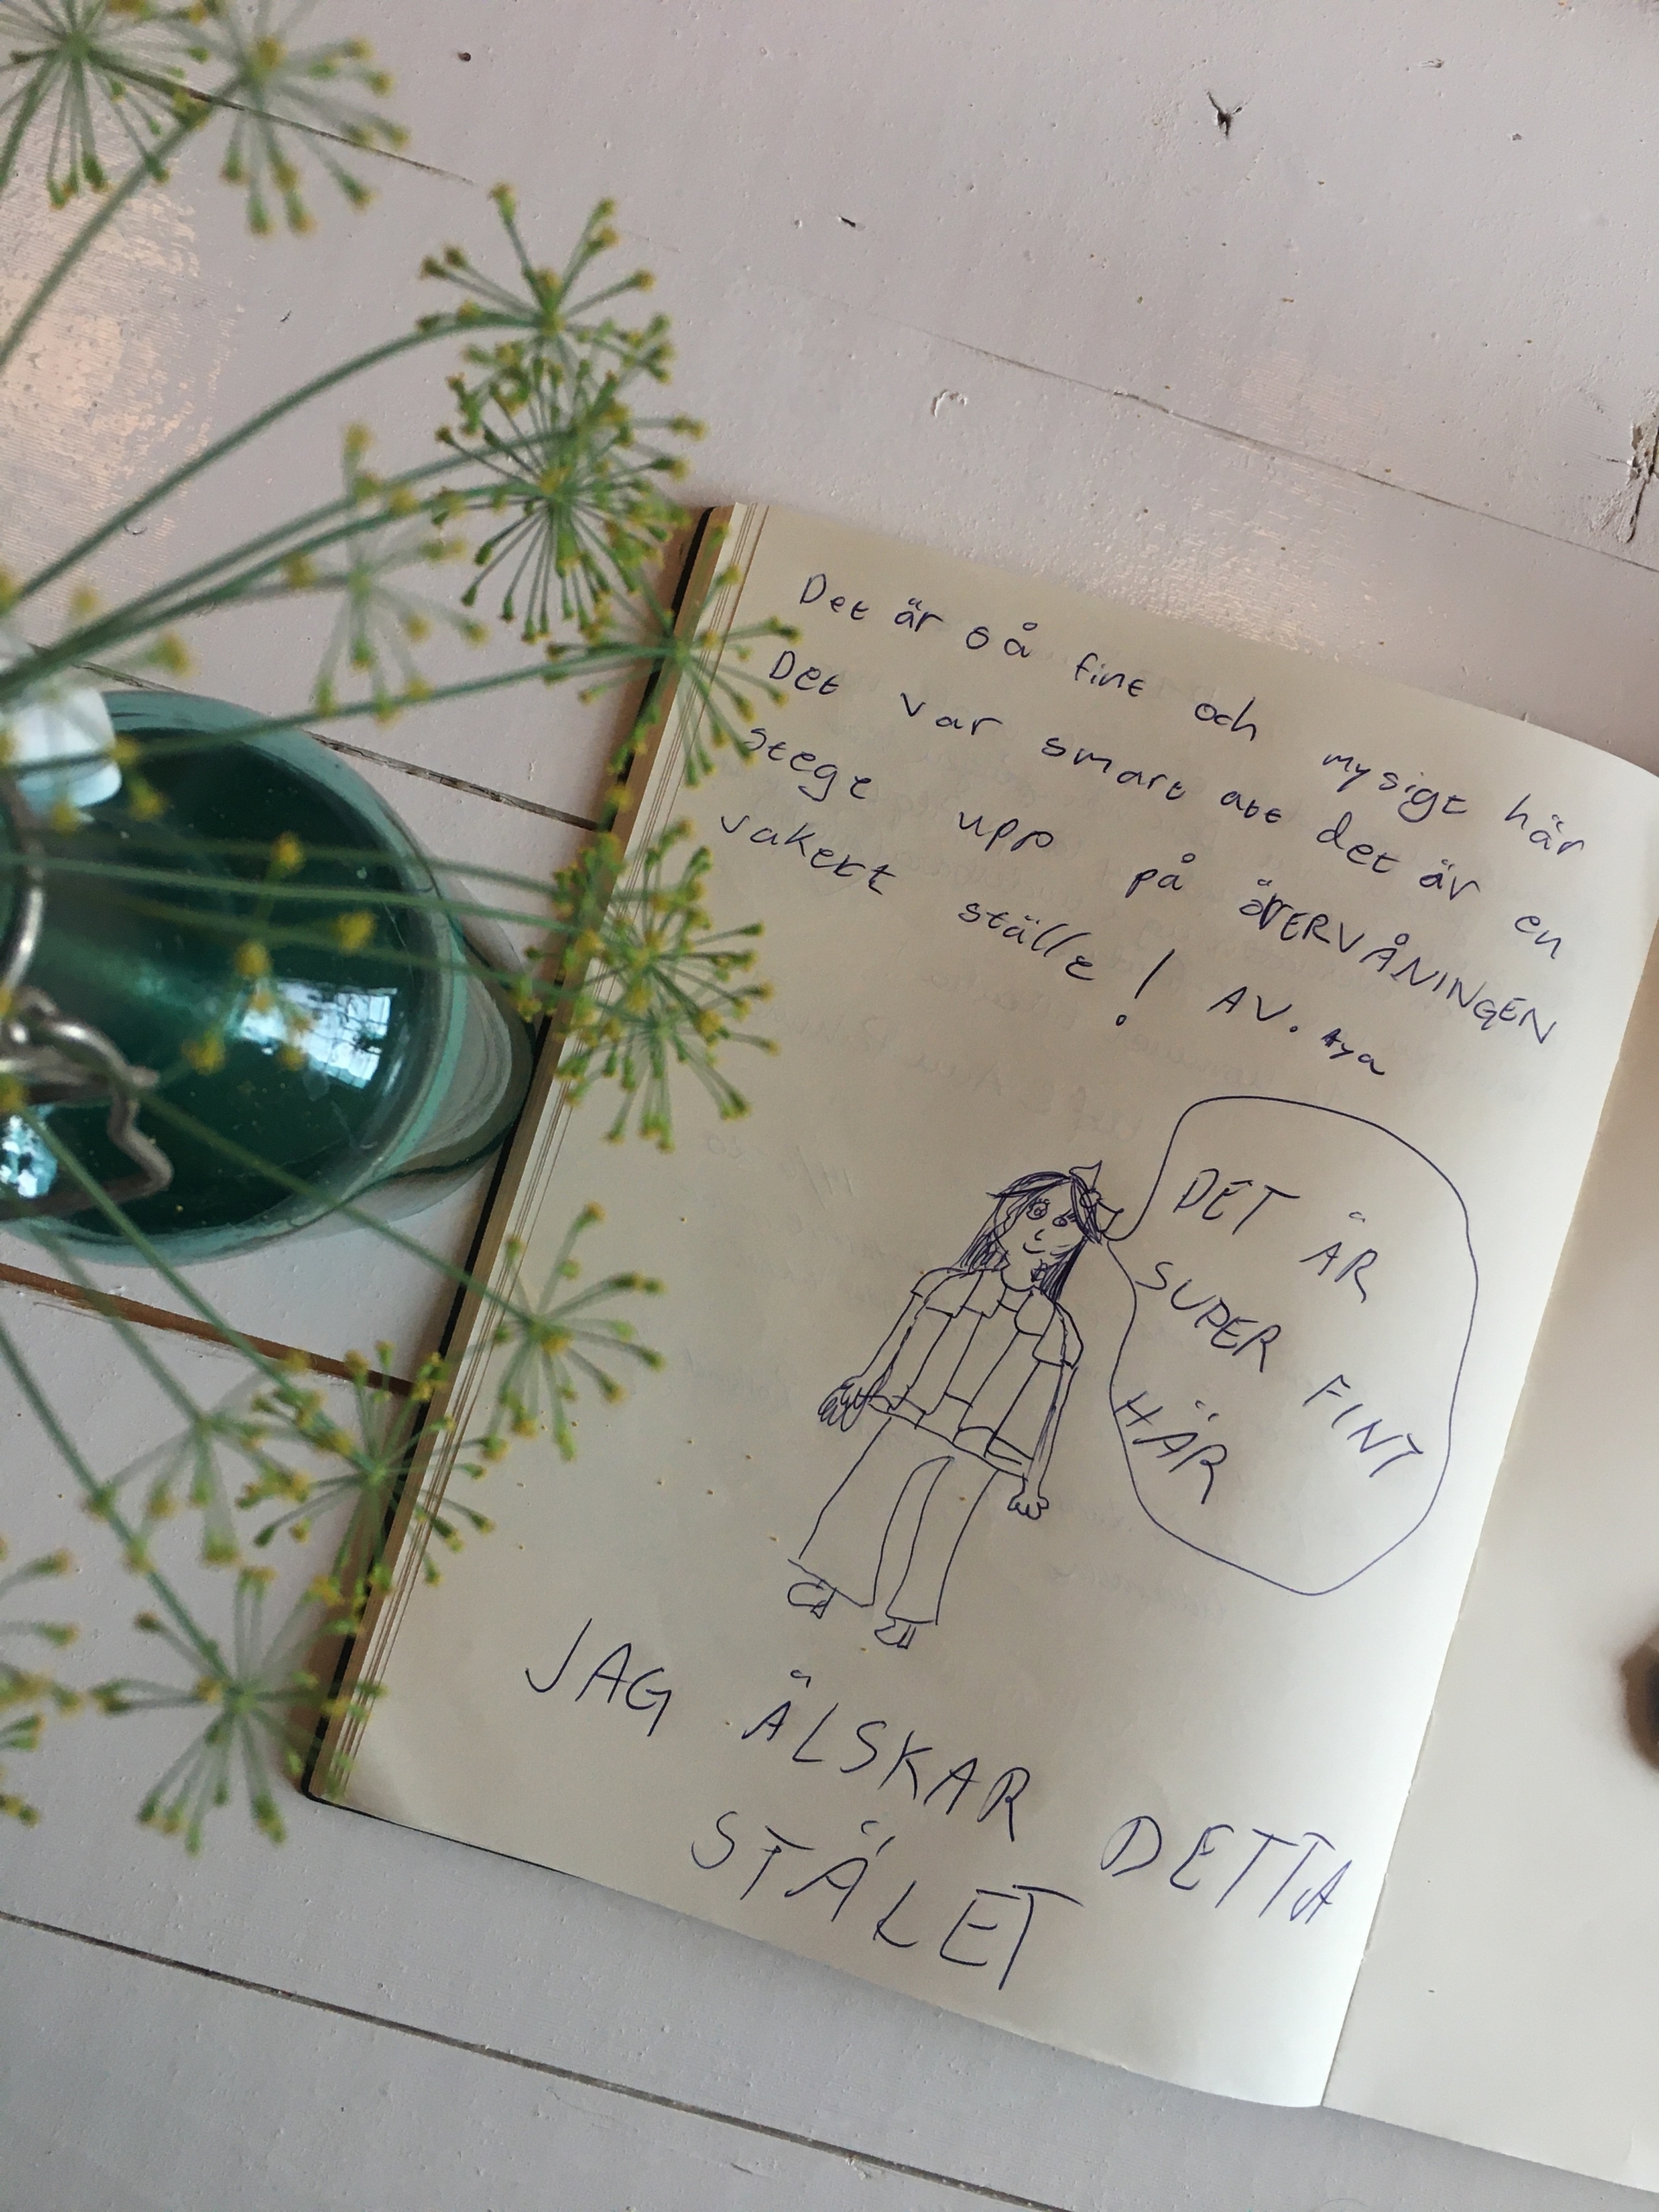 Det är så fint och mysigt här
Det var smart att det är en
stege upp på ÖVERVÅNINGEN
vakert ställe! AV. Aya
DET ÄR
SUPER FINT
HÄR
JAG ÄLSKAR DETTA
STÄLET